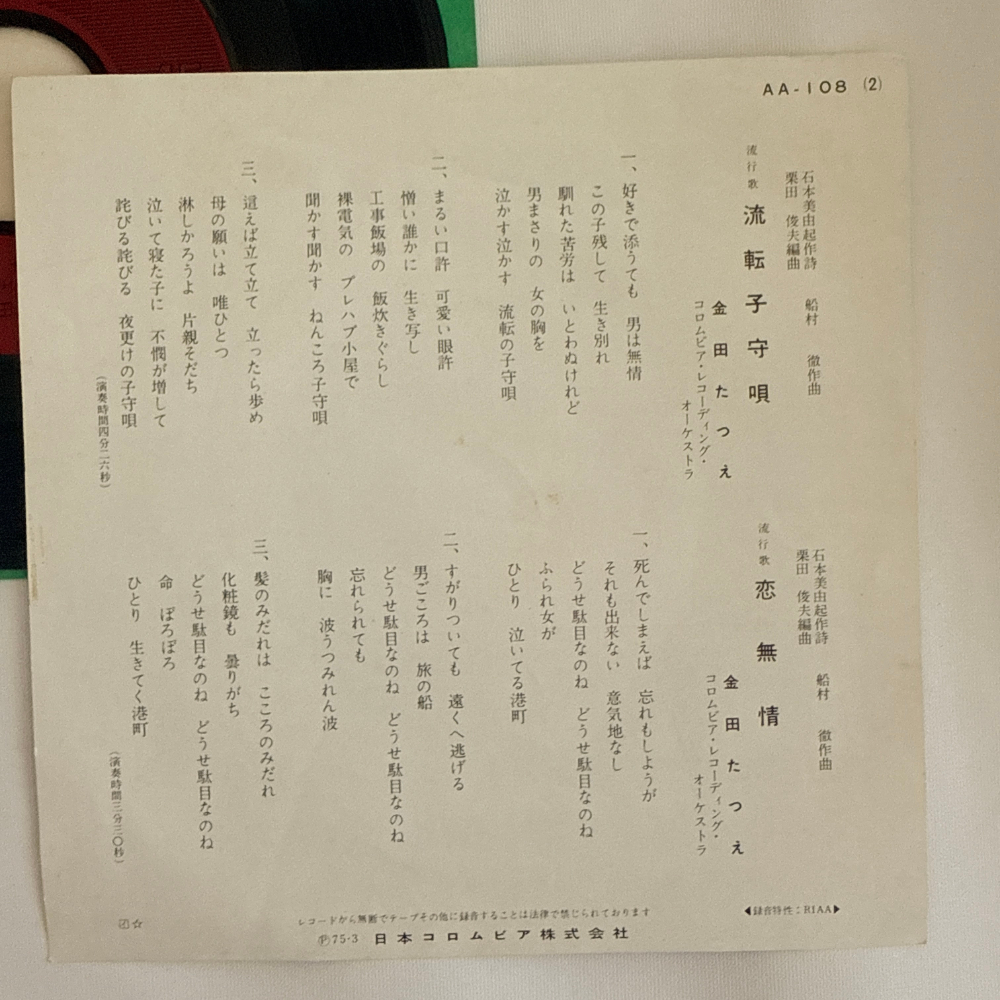 AA-108 (2)
石本美由起作詩 船村 徹作曲
栗田 俊夫編曲
流行歌 流転子守唄
金田たつえ
コロムビア・レコーディング・
オーケストラ
一、好きで添うても 男は無情
この子残して 生き別れ
馴れた苦労は いとわぬけれど
男まさりの 女の胸を
泣かす泣かす 流転の子守唄
二、まるい口許 可愛い眼許
憎い誰かに 生き写し
工事飯場の 飯炊きぐらし
裸電気の プレハブ小屋で
聞かす聞かす ねんころ子守唄
三、這えば立て立て 立ったら歩め
母の願いは 唯ひとつ
淋しかろうよ 片親そだち
泣いて寝た子に 不憫が増して
詫びる詫びる 夜更けの子守唄
(演奏時間四分二六秒)
石本美由起作詩 船村 徹作曲
栗田 俊夫編曲
流行歌 恋無情
金田たつえ
コロムビア・レコーディング・
オーケストラ
一、死んでしまえば 忘れもしようが
それも出来ない 意気地なし
どうせ駄目なのね どうせ駄目なのね
ふられ女が
ひとり 泣いてる港町
二、すがりついても 遠くへ逃げる
男ごころは 旅の船
どうせ駄目なのね どうせ駄目なのね
忘れられても
胸に 波うつみれん波
三、髪のみだれは こころのみだれ
化粧鏡も 曇りがち
どうせ駄目なのね どうせ駄目なのね
命 ぼろぼろ
ひとり 生きてく港町
(演奏時間三分三〇秒)
◀録音特性:RIAA▶
レコードから無断でテープその他に録音することは法律で禁じられております
Ⓟ75-3 日本コロムビア株式会社
☆